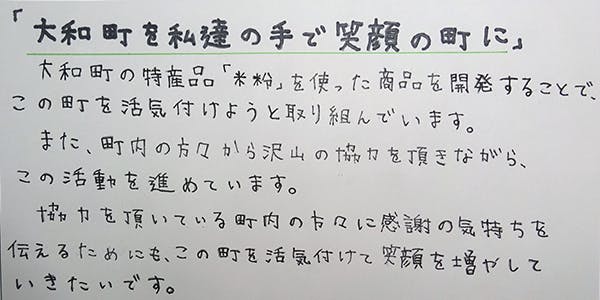 「大和町を私達の手で笑顔の町に」
大和町の特産品「米粉」を使った商品を開発することで、
この町を活気付けようと取り組んでいます。
また、町内の方々から沢山の協力を頂きながら、
この活動を進めています。
協力を頂いている町内の方々に感謝の気持ちを
伝えるためにも、この町を活気付けて笑顔を増やして
いきたいです。